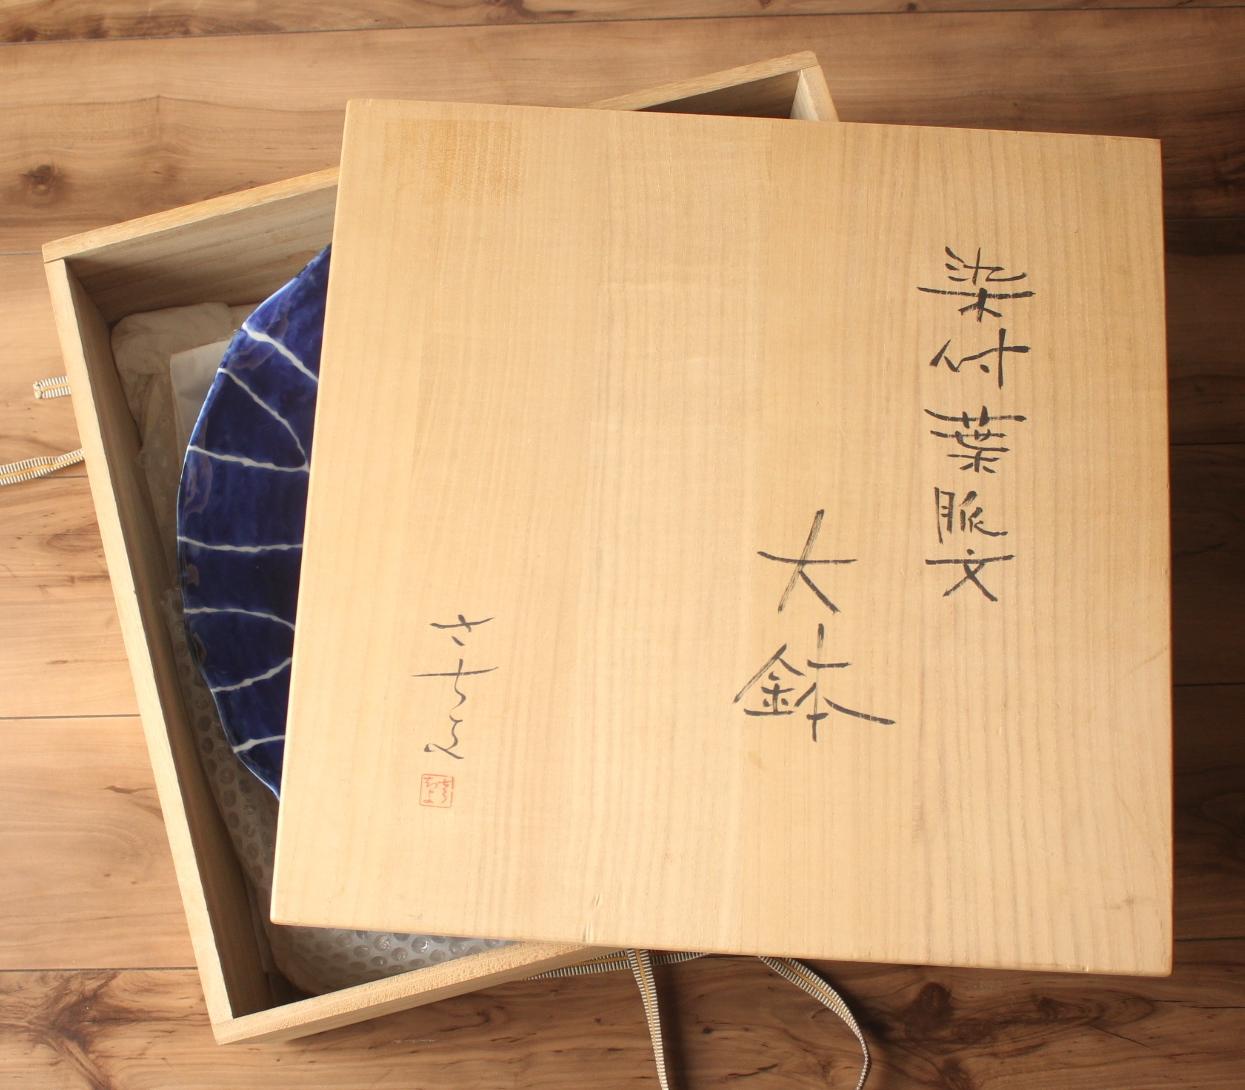 染付葉脈文
大鉢
さちこ